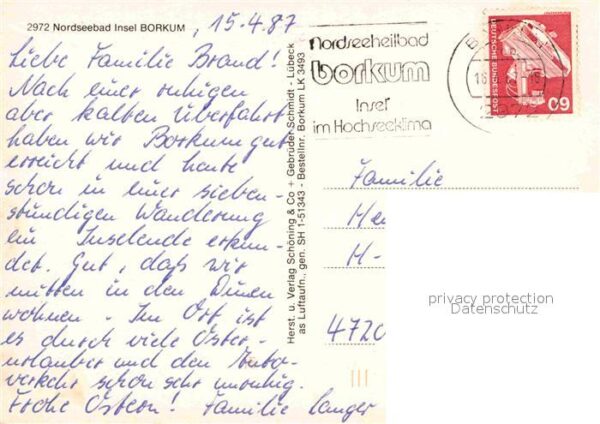 2972 Nordseebad Insel BORKUM , 15.4.87
Liebe Familie Brand!
Nach einer ruhigen
aber kalten Überfahrt
haben wir Borkum gut
erreicht und heute
schon in einer sieben-
stündigen Wanderung
ein Inselende erkun-
det. Gut, daß wir
mitten in den Dünen
wohnen. Im Ort ist
es durch viele Oster-
urlauber und den Auto-
verkehr schon sehr unruhig.
Frohe Ostern! Familie Langer
Herst. u. Verlag Schöning & Co + Gebrüder Schmidt - Lübeck
as Luftaufn., gen. SH 1-51343 - Bestellnr. Borkum LK 3493
Nordseeheilbad
borkum
Insel
im Hochseeklima
2972
DEUTSCHE BUNDESPOST
60
Familie
He
H-
4720
privacy protection
Datenschutz